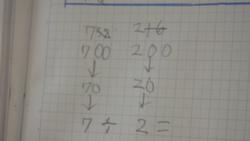 752 216
700 200
↓ ↓
70 20
↓ ↓
7 ÷ 2 =